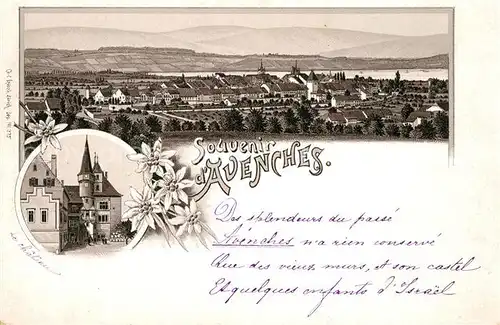 Souvenir
d'AVENCHES.
Des splendeurs du passé
Avenches n'a rien conservé
Que des vieux murs, et son castel
Et quelques enfants d'Israël
le château